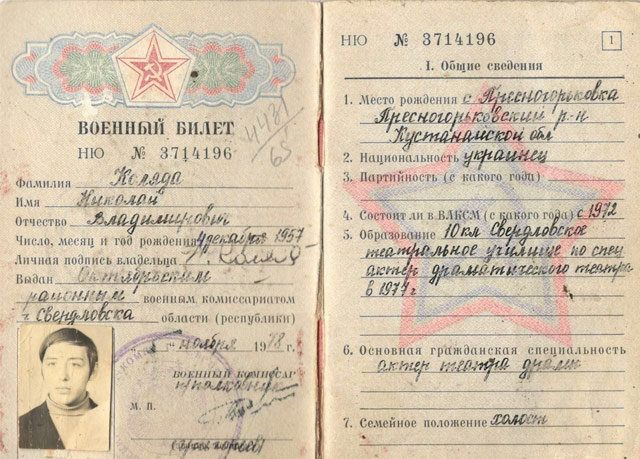 ВОЕННЫЙ БИЛЕТ
НЮ № 3714196
4481
65
Фамилия Коляда
Имя Николай
Отчество Владимирович
Число, месяц и год рождения 4 декабря 1957
Личная подпись владельца
Выдан Октябрьским
районным военным комиссариатом
г Свердловска области (республики)
ноября 1978 г.
ВОЕННЫЙ КОМИССАР
М. П.
НЮ № 3714196 1
I. Общие сведения
1. Место рождения с. Пресногорьковка
Пресногорьковский р-н
Кустанайской обл
2. Национальность украинец
3. Партийность (с какого года)
4. Состоит ли в ВЛКСМ (с какого года) с 1972
5. Образование 10 кл Свердловское
театральное училище по спец
актер драматического театра
в 1977 г
6. Основная гражданская специальность
актер театра драмы
7. Семейное положение холост